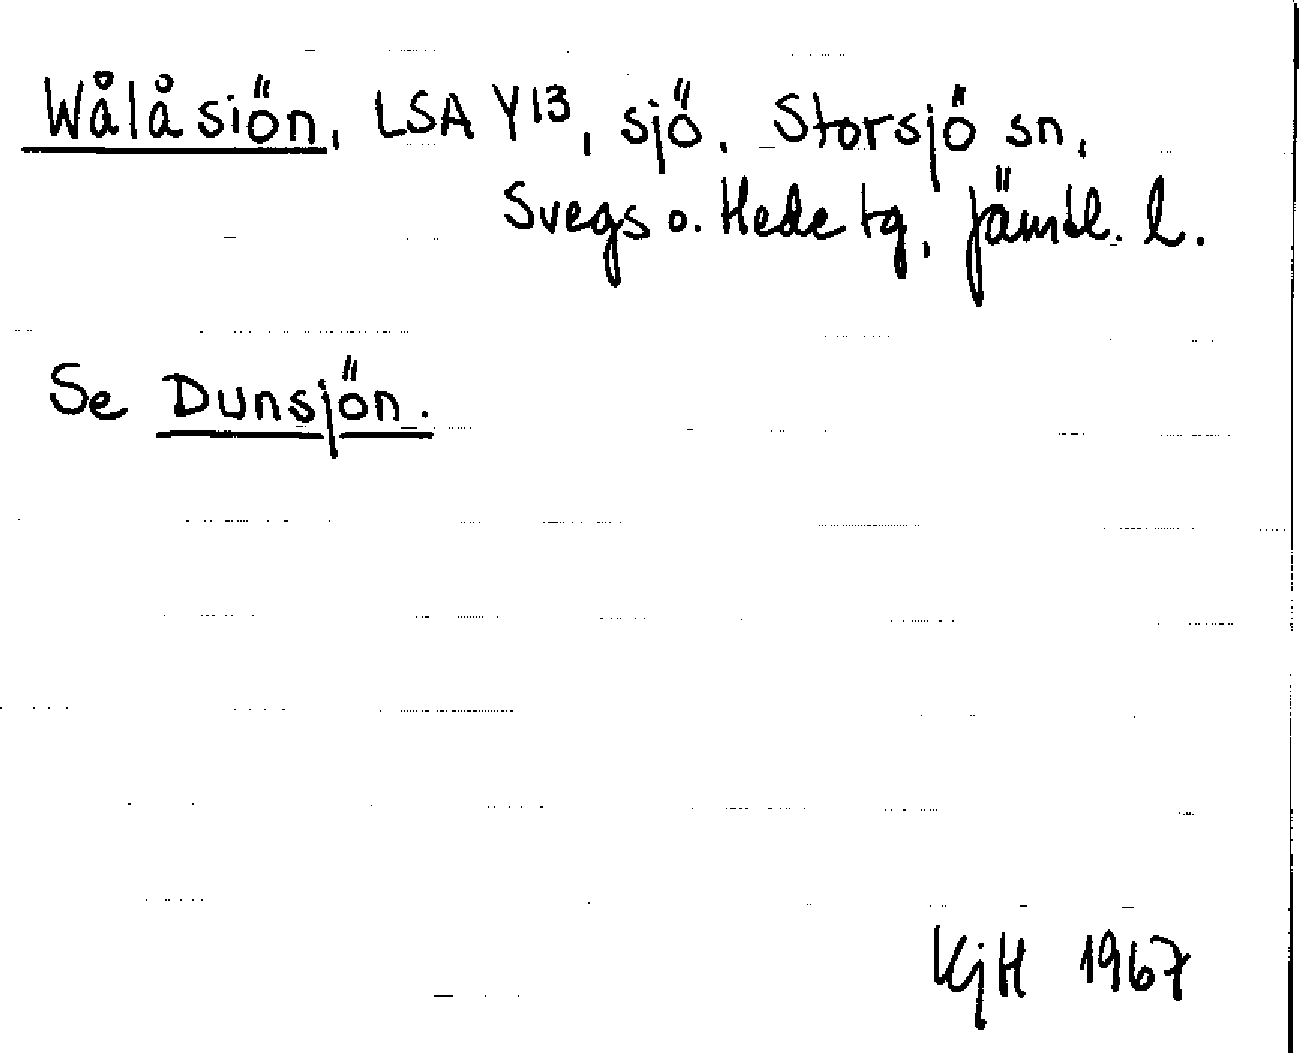 Wålåsiön, LSA Y13, sjö, Storsjö sn,
Svegs o. Hede tg, Jämtl. l.
Se Dunsjön.
KjH 1967